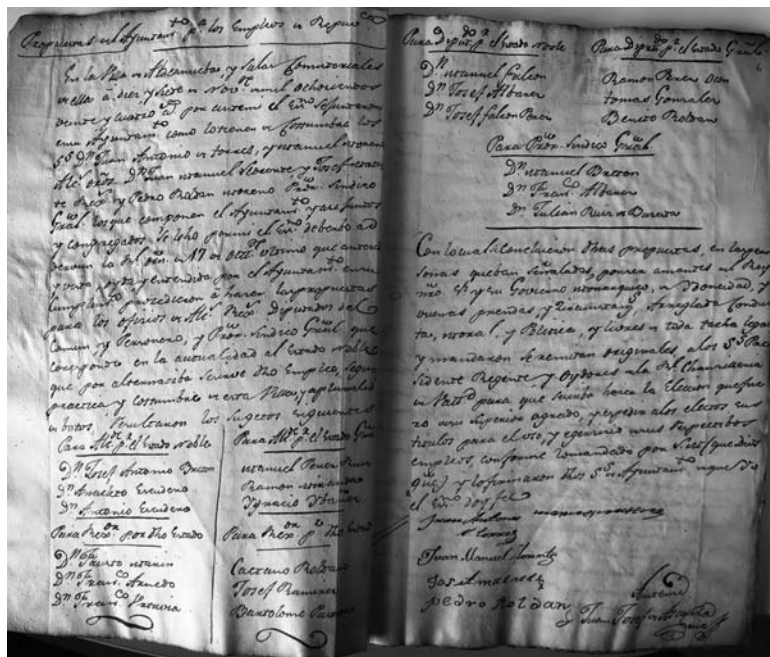 Propuestas del Ayuntam.to p.a los Empleos de Repub.co
En la Villa de Aldeanueba, y Salas Consistoriales
de ella â diez y siete de Nov.e de mil ochocientos
veinte y cuatro a.s por antemi el Ess.no se juntaron
en su Ayuntam.to como lo tienen de Costumbre los
SS. D.n Juan Antonio de torres, y Manuel Moreno
Alc.s ord.s D.n Juan Manuel Llorente y Josef
Rex.s y Pedro Roldan Moreno Pror. Sindico
Gral. los que componen el Ayuntam.to y asi juntos
y congregados Se leyo por mi el Ess.no
la Rl. orn. de 17 de Oct.e ultimo que antecede
y vista, oyda y entendida por el Ayuntam.to en su
cumplim.to procedieron â hacer las propuestas
para los oficios de Alc.s Rex.s Diputados del
Comun, y Personero, y Pror. Sindico Gral. que
corresponde en la actualidad al Estado Noble
que por alternatiba se sirve dho Empleo, segun
practica y costumbre de esta Villa, y a pluralidad
de botos, Resultaron los Sugetos siguientes
Para Alc.e p.r el Estado Noble
D.n Josef Antonio Breton
D.n Anacleto Escudero
D.n Antonio Escudero
Para Rex.or por dho Estado
D.n Fausto Marin
D.n Fran.co Arnedo
D.n Fran.co
Para Alc.e p.r el Estado Gral
Manuel Perez Ruiz
Ramon
Ygnacio Ybañez
Para Rex.or p.r dho Estad
Caetano Roldan
Josef Ramirez
Bartolome
Para Diput.do p.r el Estado Noble
D.n Manuel Falcon
D.n Josef Aldaner
D.n Josef Falcon Perez
Para Diput.do p.r el Estado Gral.
Ramon Perez
tomas Gonzalez
Benito Roldan
Para Pror. Sindico Gral.
D.n Manuel Breton
D.n Fran.co Aldaner
D.n Julian Ruiz de
Con lo cual se concluieron dhas propuestas, en las per
sonas que ban señaladas, por ser amantes del Rey
nro. Sr. y su Govierno Monarquico, de Ydoneidad, y
buenas prendas, y circunstan.s Arreglada Conduc
ta, Moral, y Politica, y libres de toda tacha legal
y mandaron se remitan originales, a los SS. Pre
sidente Regente y Oydores de la Rl. Chancilleria
de Vall.d para que se sirba hacer la Eleccion que fue
re de su Superior agrado, y expedir a los electos sus
titulos para el uso, y egercicio de sus respectibos
empleos, conforme lo mandado por S.M. (que Dios
gue) y lo firmaron dhos SS. de Ayuntam.to de que Yo
el Ess.no doy fee
Juan Antonio
de torres
Juan Manuel Llorente
Pedro Roldan
Antemi
Juan Josef de